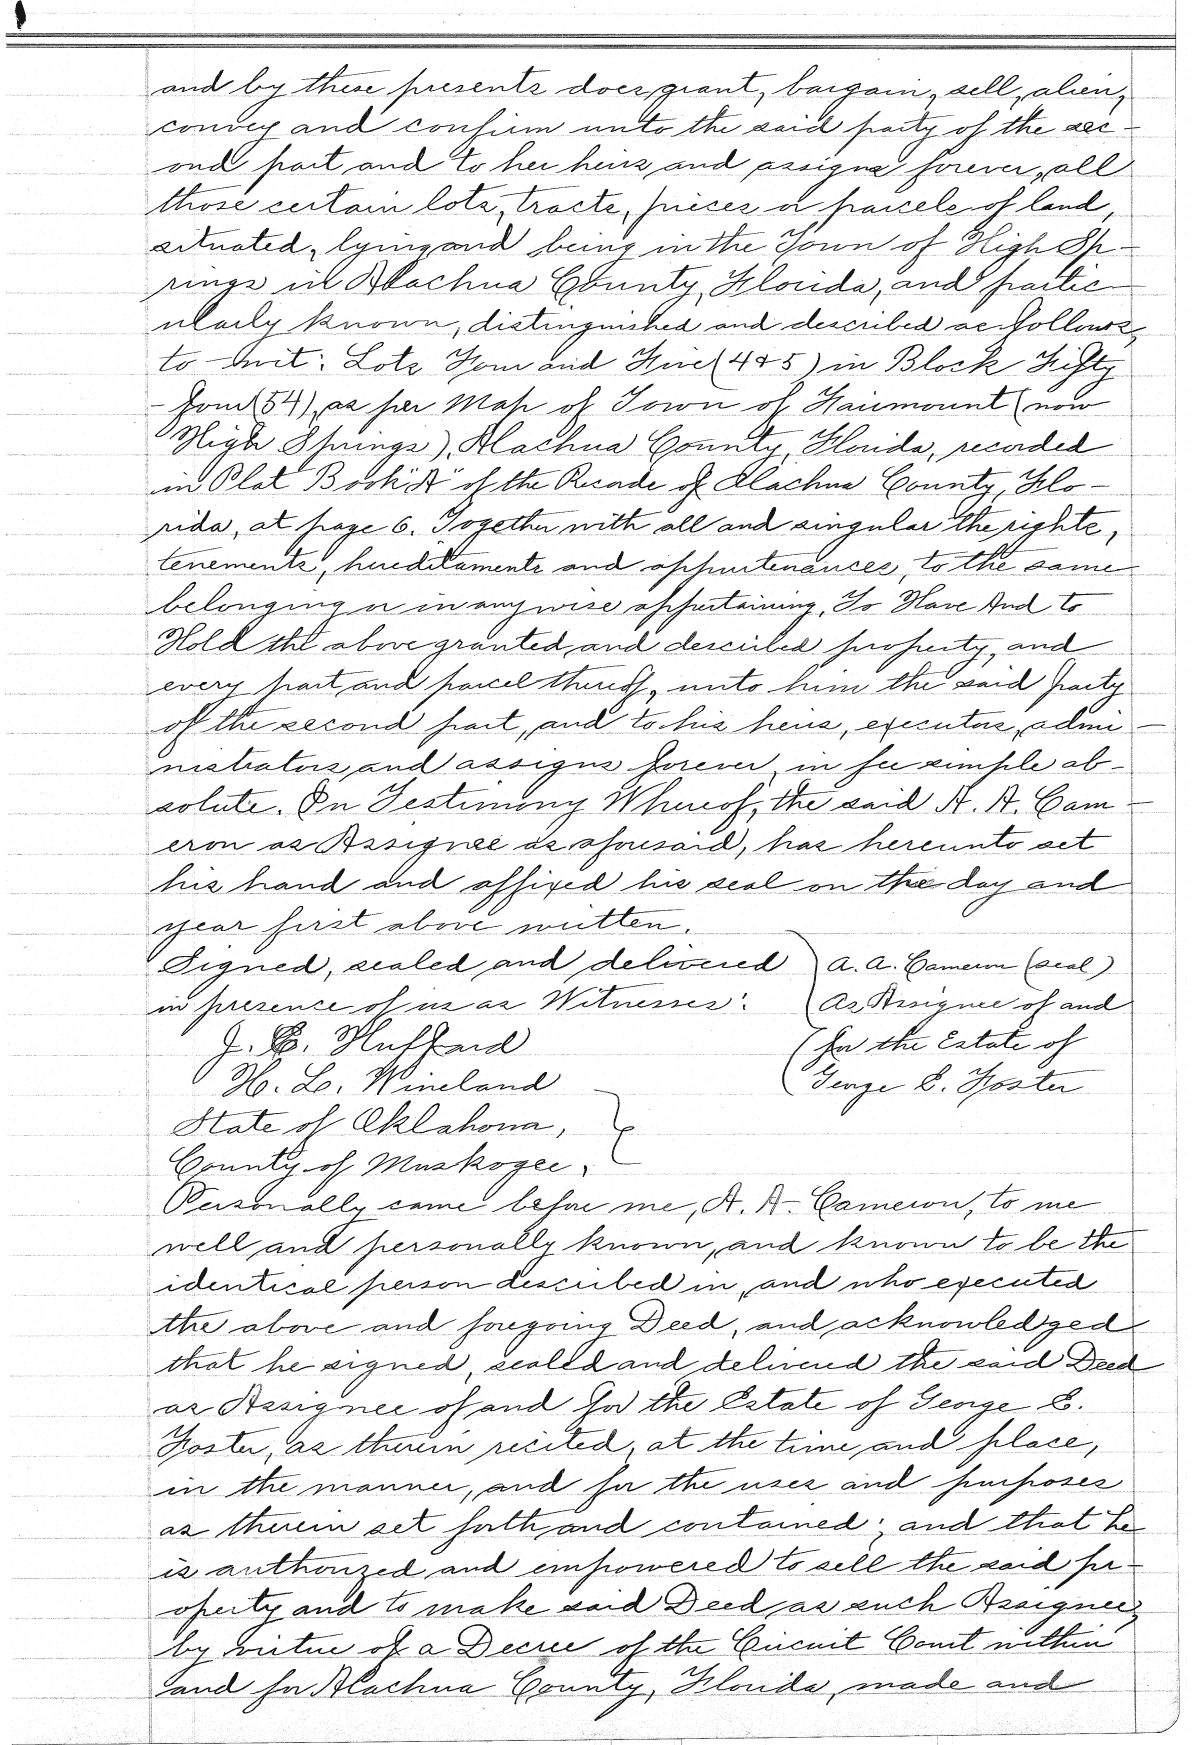 and by these presents does grant, bargain, sell, alien,
convey and confirm unto the said party of the sec-
ond part and to her heirs and assigns forever, all
those certain lots, tracts, pieces or parcels of land,
situated, lying and being in the Town of High Sp-
rings in Alachua County, Florida, and partic-
ularly known, distinguished and described as follows,
to-wit: Lots Four and Five (4 & 5) in Block Fifty
-four (54), as per Map of Town of Fairmount (now
High Springs), Alachua County, Florida, recorded
in Plat Book "A" of the Records of Alachua County, Flo-
rida, at page 6. Together with all and singular the rights,
tenements, hereditaments and appurtenances, to the same
belonging or in anywise appertaining, To Have And to
Hold the above granted and described property, and
every part and parcel thereof, unto him the said party
of the second part, and to his heirs, executors, admi-
nistrators and assigns forever, in fee simple ab-
solute. In Testimony Whereof, the said A. A. Cam-
eron as Assignee as aforesaid, has hereunto set
his hand and affixed his seal on the day and
year first above written.
Signed, sealed and delivered ) A. A. Cameron (seal)
in presence of us as Witnesses: ( As Assignee of and
J. E. Huffard ( for the Estate of
H. L. Wineland ( George E. Foster
State of Oklahoma, }
County of Muskogee. }
Personally came before me, A. A. Cameron, to me
well and personally known, and known to be the
identical person described in, and who executed
the above and foregoing Deed, and acknowledged
that he signed, sealed and delivered the said Deed
as Assignee of and for the Estate of George E.
Foster, as therein recited, at the time and place,
in the manner, and for the uses and purposes
as therein set forth and contained; and that he
is authorized and empowered to sell the said pr-
operty and to make said Deed as such Assignee,
by virtue of a Decree of the Circuit Court within
and for Alachua County, Florida, made and